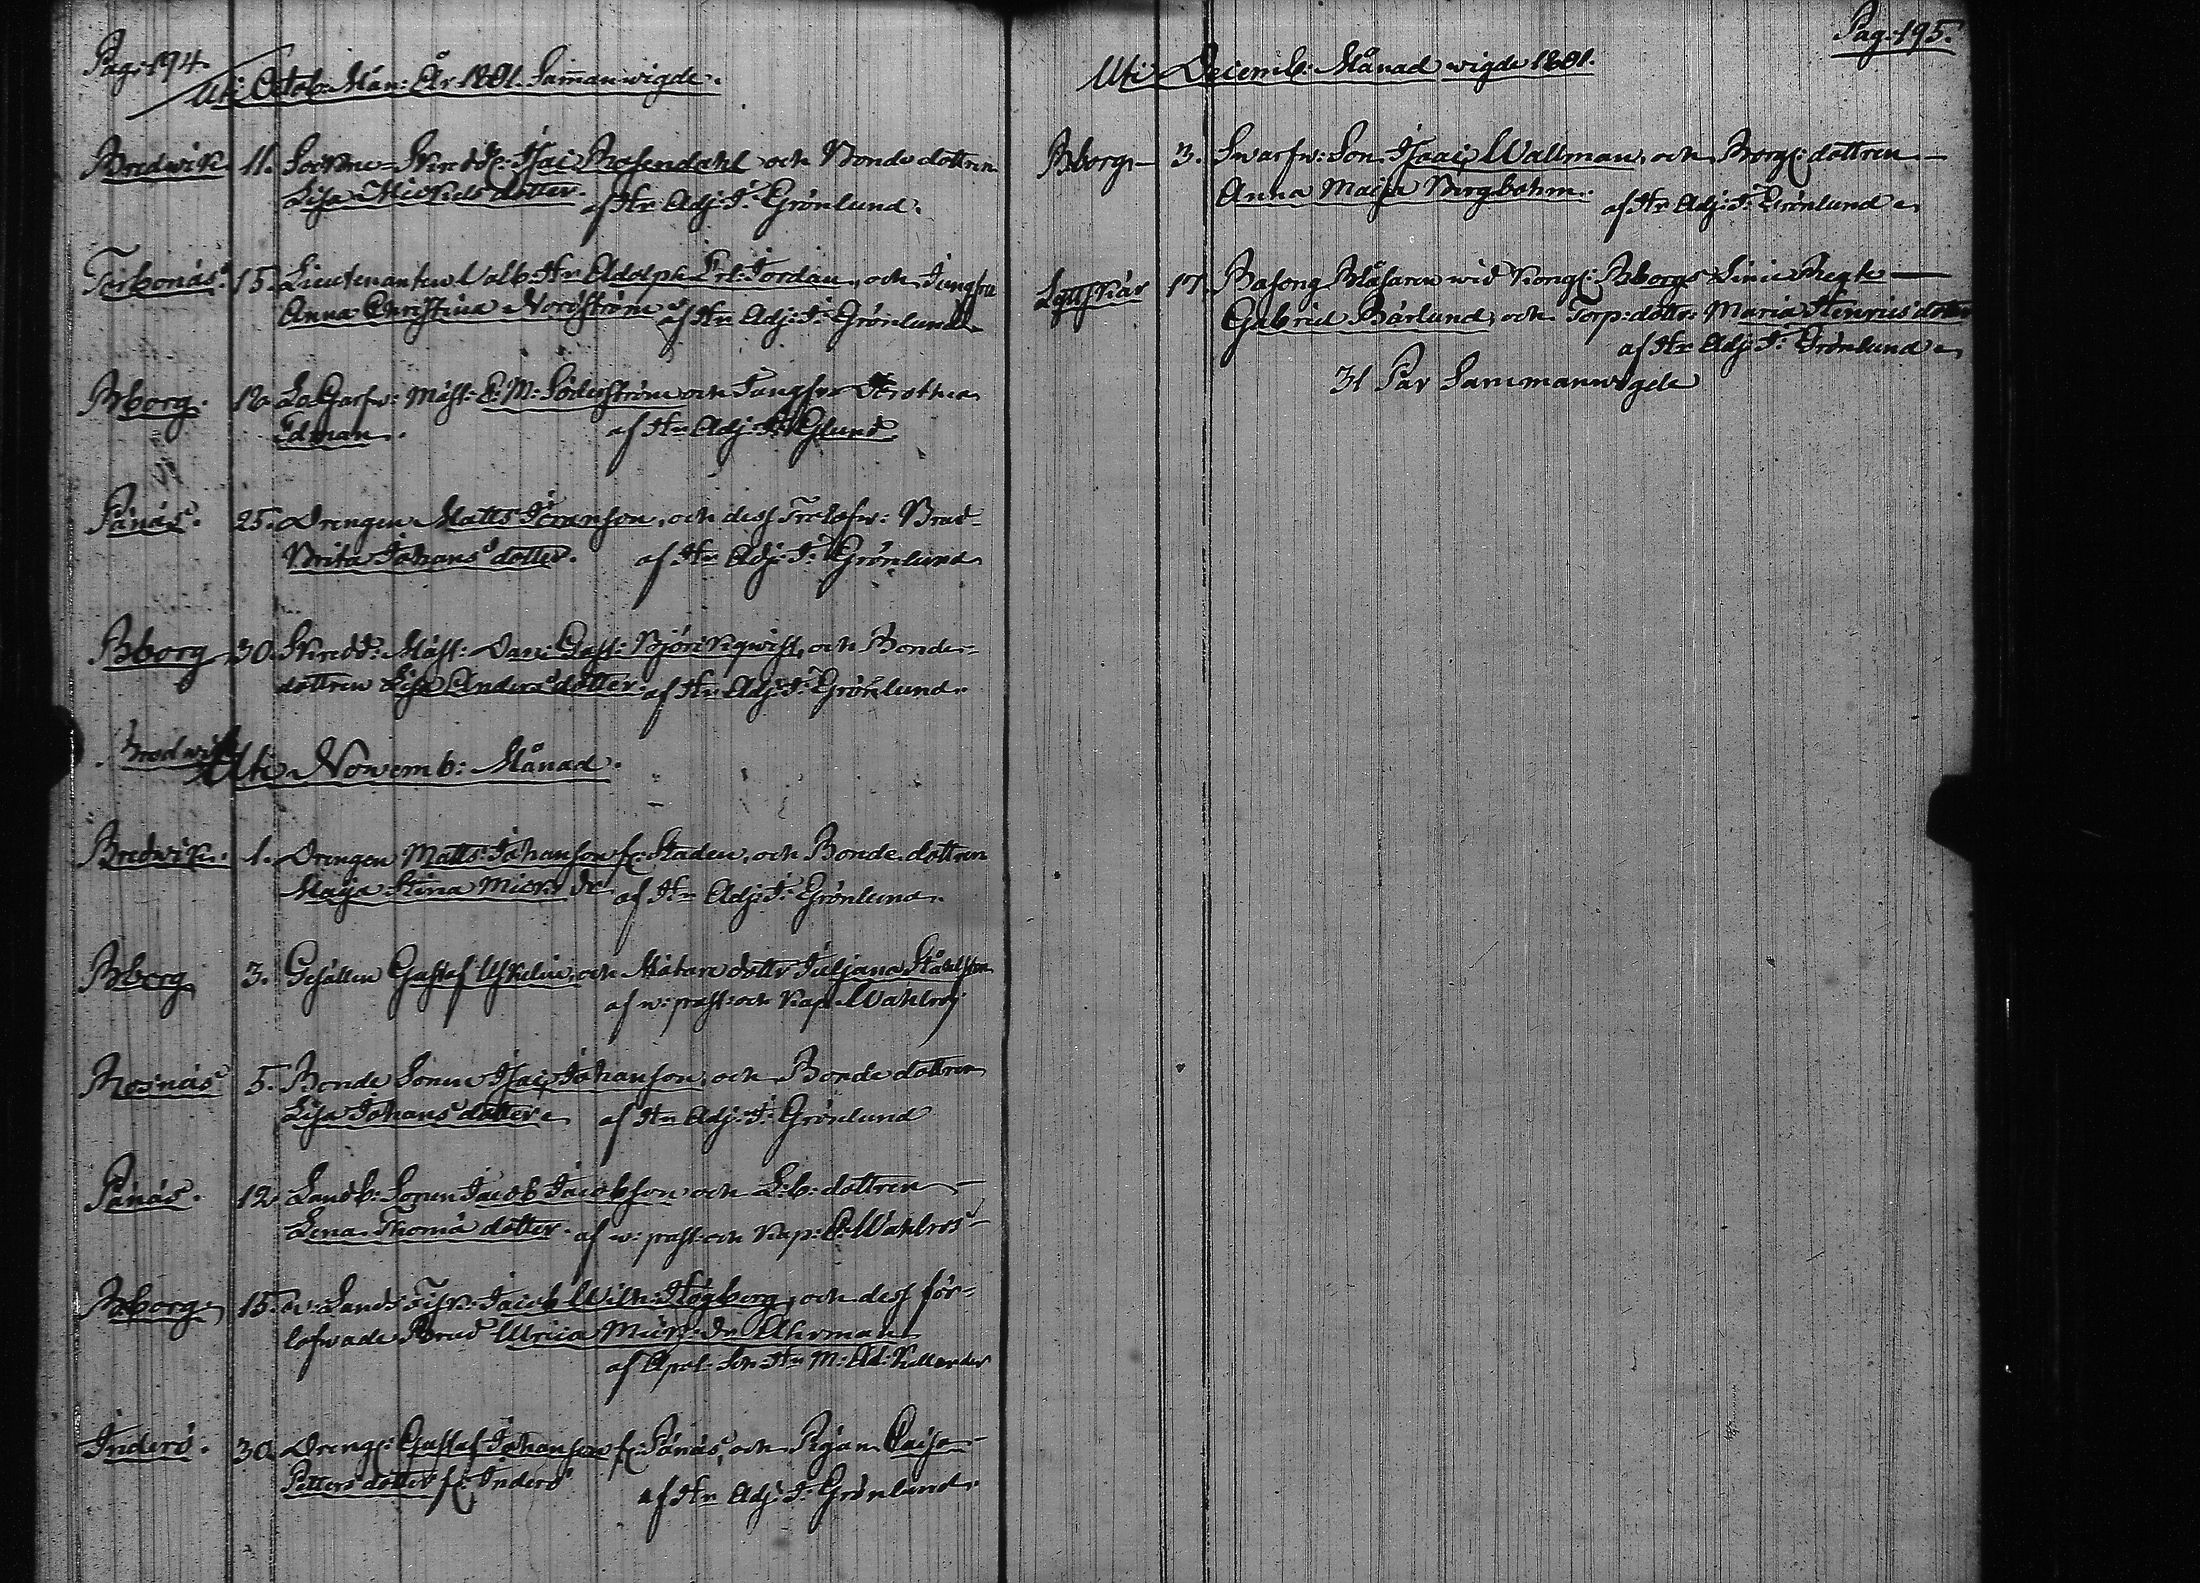 Pag: 194.
Uti Octob: Mån: År 1801. Samman wigde.
Bredwik 11. Sockne-Skredd: Isac Rosendahl och Bonde dottren
Lisa Mickels dotter. af Hr Adj: J: Grönlund.
Torbonäs. 15. Lieutenanten Hr Adolph Jordan, och Jungfru
Anna Christina Nordström af Hr Adj: J: Grönlund
Bborg. Garfw: Mäst: E: M: Söderström och Jungfru
Edman. af Hr Adj:
Pänäs. 25. Drengen Matts Göranson, och dess Trolofw: Brud
Brita Johans dotter. af Hr Adj: J: Grönlund
Bborg 30. Skredd: Mäst: Dan: Gust: Björckqwist, och Bonde-
dottren Lisa Anders dotter. af Hr Adj: J: Grönlund.
Bredwik
Uti Novemb: Månad.
Bredwik. 1. Drengen Matts Johanson fr: Staden, och Bonde dottren
Maija Stina Mickels dr af Hr Adj: J: Grönlund.
Bborg 3. Gesällen Gustaf Uskelin, och Mätare dottr Juljana Ståhlström
af w: past: och Kap: Wahlroos
Rosnäs 5. Bonde Sonen Isac Johanson, och Bonde dottren
Lisa Johans dotter. af Hr Adj: J: Grönlund
Pänäs. 12. Landb: Sonen Jacob Jacobson och L:b: dottren
Lena Thomä dotter. af w: past: och Kap: E: Wahlroos
Bborg. 15. w: Lands Fisk: Jacob Wilh: Högberg, och dess för-
lofwade Brud Ulrica Ahrman
af Hr M: Ad: Kellander
Inderö. 30. Drengen Gustaf Johanson fr: Pänäs, och Pigan Caisa
Petters dotter fr: Inderö af Hr Adj: J: Grönlund.
Pag: 195.
Uti Decemb: Månad wigde 1801.
Bborg 3. Swarfw: Son Isaac Wallman, och Borg: dottren
Anna Maija Bergbohm. af Hr Adj: J: Grönlund
Lyttskär 17. Basong Blåsaren wid Kongl: Bborgs Linie Regte
Gabriel Bärlund, och Torp: dottr Maria Henrics dotter
af Hr Adj: J: Grönlund
31 Par Sammanwigde